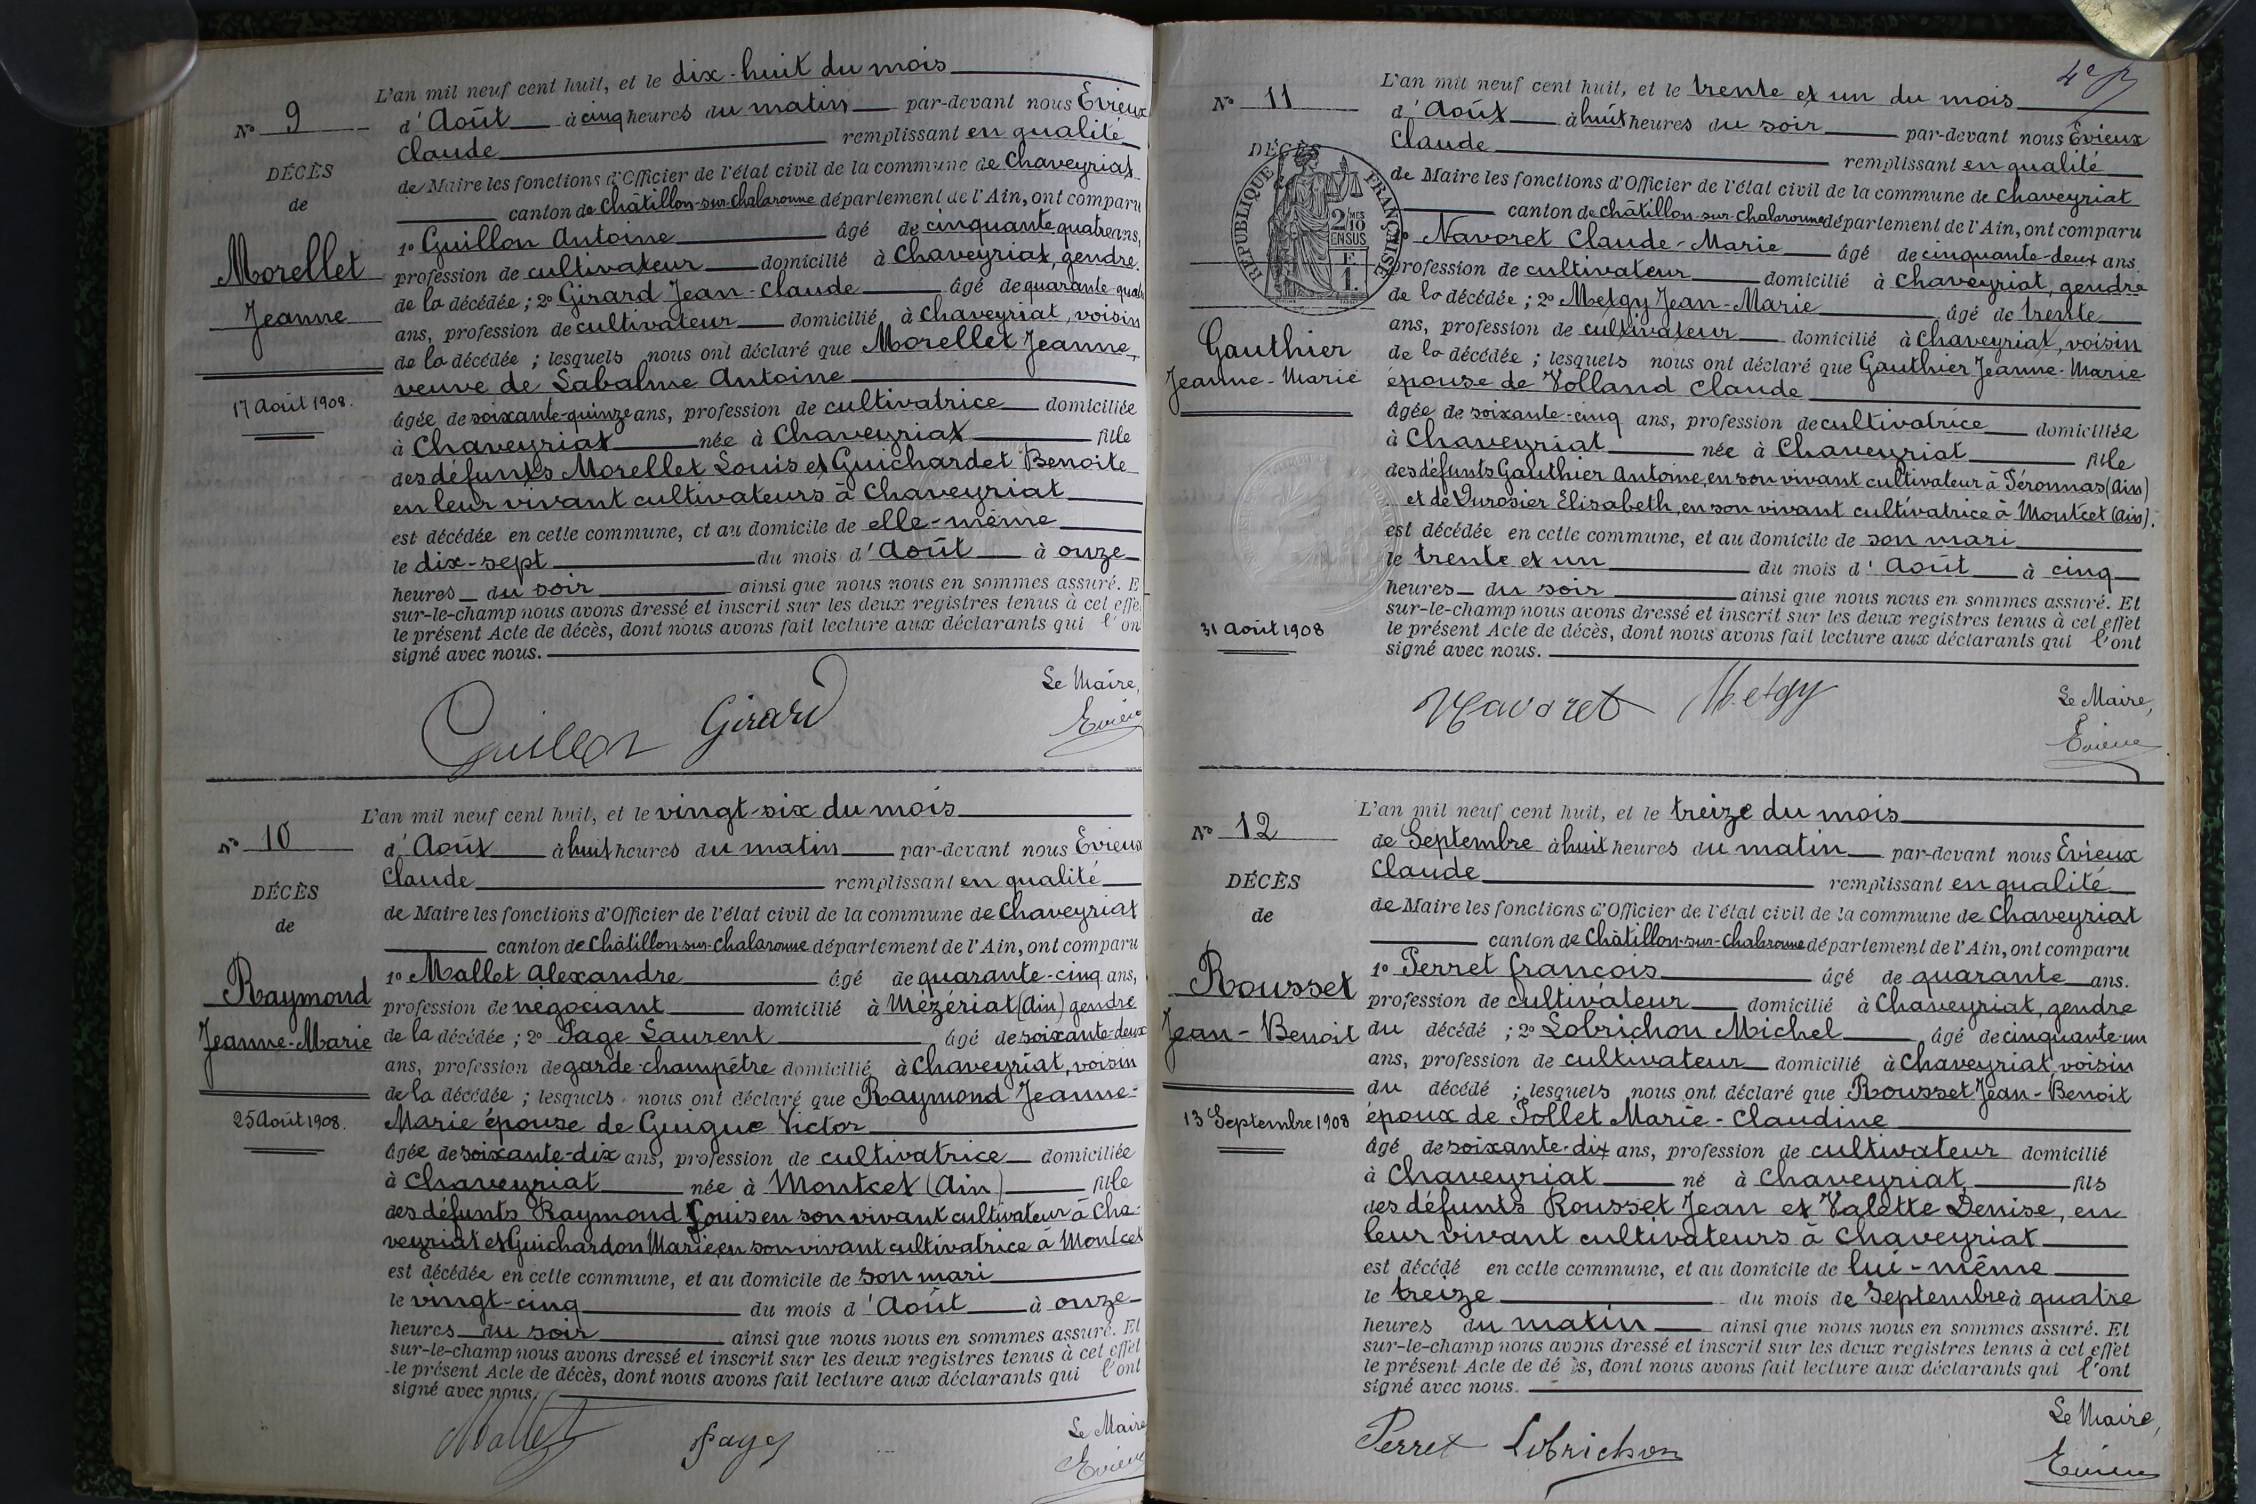 L'an mil neuf cent huit, et le dix-huit du mois
N° 9
d'Août à cinq heures du matin par-devant nous Evieux
Claude remplissant en qualité
DÉCÈS
de Maire les fonctions d'Officier de l'état civil de la commune de Chaveyriat
de
canton de Châtillon-sur-Chalaronne département de l'Ain, ont comparu
1° Guillon Antoine âgé de cinquante quatre ans,
Morellet
profession de cultivateur domicilié à Chaveyriat, gendre
de la décédée ; 2° Girard Jean-Claude âgé de quarante-quatre
Jeanne
ans, profession de cultivateur domicilié à Chaveyriat, voisin
de la décédée ; lesquels nous ont déclaré que Morellet Jeanne
veuve de Labalme Antoine
17 Août 1908.
âgée de soixante-quinze ans, profession de cultivatrice domiciliée
à Chaveyriat née à Chaveyriat fille
des défunts Morellet Louis et Guichardet Benoite
en leur vivant cultivateurs à Chaveyriat
est décédée en cette commune, et au domicile de elle-même
le dix-sept du mois d'Août à onze
heures du soir ainsi que nous nous en sommes assuré. E
sur-le-champ nous avons dressé et inscrit sur les deux registres tenus à cet effe
le présent Acte de décès, dont nous avons fait lecture aux déclarants qui l'on
signé avec nous.
Le Maire,
Guillon Girard Evieux
L'an mil neuf cent huit, et le vingt-six du mois
N° 10
d'Août à huit heures du matin par-devant nous Evieux
Claude remplissant en qualité
DÉCÈS
de Maire les fonctions d'Officier de l'état civil de la commune de Chaveyriat
de
canton de Châtillon-sur-Chalaronne département de l'Ain, ont comparu
1° Mallet Alexandre âgé de quarante-cinq ans,
Raymond
profession de négociant domicilié à Mézériat (Ain) gendre
Jeanne-Marie
de la décédée ; 2° Page Laurent âgé de soixante-deux
ans, profession de garde-champêtre domicilié à Chaveyriat, voisin
de la décédée ; lesquels nous ont déclaré que Raymond Jeanne-
25 Août 1908.
Marie épouse de Guigue Victor
âgée de soixante-dix ans, profession de cultivatrice domiciliée
à Chaveyriat née à Montcet (Ain) fille
des défunts Raymond Louis en son vivant cultivateur à Cha-
veyriat et Guichardon Marie en son vivant cultivatrice à Montcet
est décédée en cette commune, et au domicile de son mari
le vingt-cinq du mois d'Août à onze
heures du soir ainsi que nous nous en sommes assuré. Et
sur-le-champ nous avons dressé et inscrit sur les deux registres tenus à cet effet
le présent Acte de décès, dont nous avons fait lecture aux déclarants qui l'ont
signé avec nous.
Le Maire
Mallet Page Evieux
L'an mil neuf cent huit, et le trente et un du mois
N° 11
d'Août à huit heures du soir par-devant nous Evieux
Claude remplissant en qualité
DÉCÈS
de Maire les fonctions d'Officier de l'état civil de la commune de Chaveyriat
RÉPUBLIQUE FRANÇAISE
2/10 MES
EN SUS
F.
1.
canton de Châtillon-sur-Chalaronne département de l'Ain, ont comparu
Navoret Claude-Marie âgé de cinquante-deux ans.
profession de cultivateur domicilié à Chaveyriat, gendre
de la décédée ; 2° Metgy Jean-Marie âgé de trente
ans, profession de cultivateur domicilié à Chaveyriat, voisin
Gauthier
Jeanne-Marie
de la décédée ; lesquels nous ont déclaré que Gauthier Jeanne-Marie
épouse de Volland Claude
âgée de soixante-cinq ans, profession de cultivatrice domiciliée
à Chaveyriat née à Chaveyriat fille
des défunts Gauthier Antoine, en son vivant cultivateur à Péronnas (Ain)
et de Durosier Elisabeth, en son vivant cultivatrice à Montcet (Ain).
est décédée en cette commune, et au domicile de son mari
le trente et un du mois d'Août à cinq
heures du soir ainsi que nous nous en sommes assuré. Et
sur-le-champ nous avons dressé et inscrit sur les deux registres tenus à cet effet
31 Août 1908
le présent Acte de décès, dont nous avons fait lecture aux déclarants qui l'ont
signé avec nous.
Le Maire,
Navoret Metgy Evieux
L'an mil neuf cent huit, et le treize du mois
N° 12
de Septembre à huit heures du matin par-devant nous Evieux
Claude remplissant en qualité
DÉCÈS
de Maire les fonctions d'Officier de l'état civil de la commune de Chaveyriat
de
canton de Châtillon-sur-Chalaronne département de l'Ain, ont comparu
1° Perret François âgé de quarante ans.
Rousset
profession de cultivateur domicilié à Chaveyriat, gendre
Jean-Benoit
du décédé ; 2° Lobrichon Michel âgé de cinquante-un
ans, profession de cultivateur domicilié à Chaveyriat, voisin
du décédé ; lesquels nous ont déclaré que Rousset Jean-Benoit
13 Septembre 1908
époux de Pollet Marie-Claudine
âgé de soixante-dix ans, profession de cultivateur domicilié
à Chaveyriat né à Chaveyriat fils
des défunts Rousset Jean et Valette Denise, en
leur vivant cultivateurs à Chaveyriat
est décédé en cette commune, et au domicile de lui-même
le treize du mois de Septembre à quatre
heures du matin ainsi que nous nous en sommes assuré. Et
sur-le-champ nous avons dressé et inscrit sur les deux registres tenus à cet effet
le présent Acte de dé s, dont nous avons fait lecture aux déclarants qui l'ont
signé avec nous.
Le Maire,
Perret Lobrichon Evieux